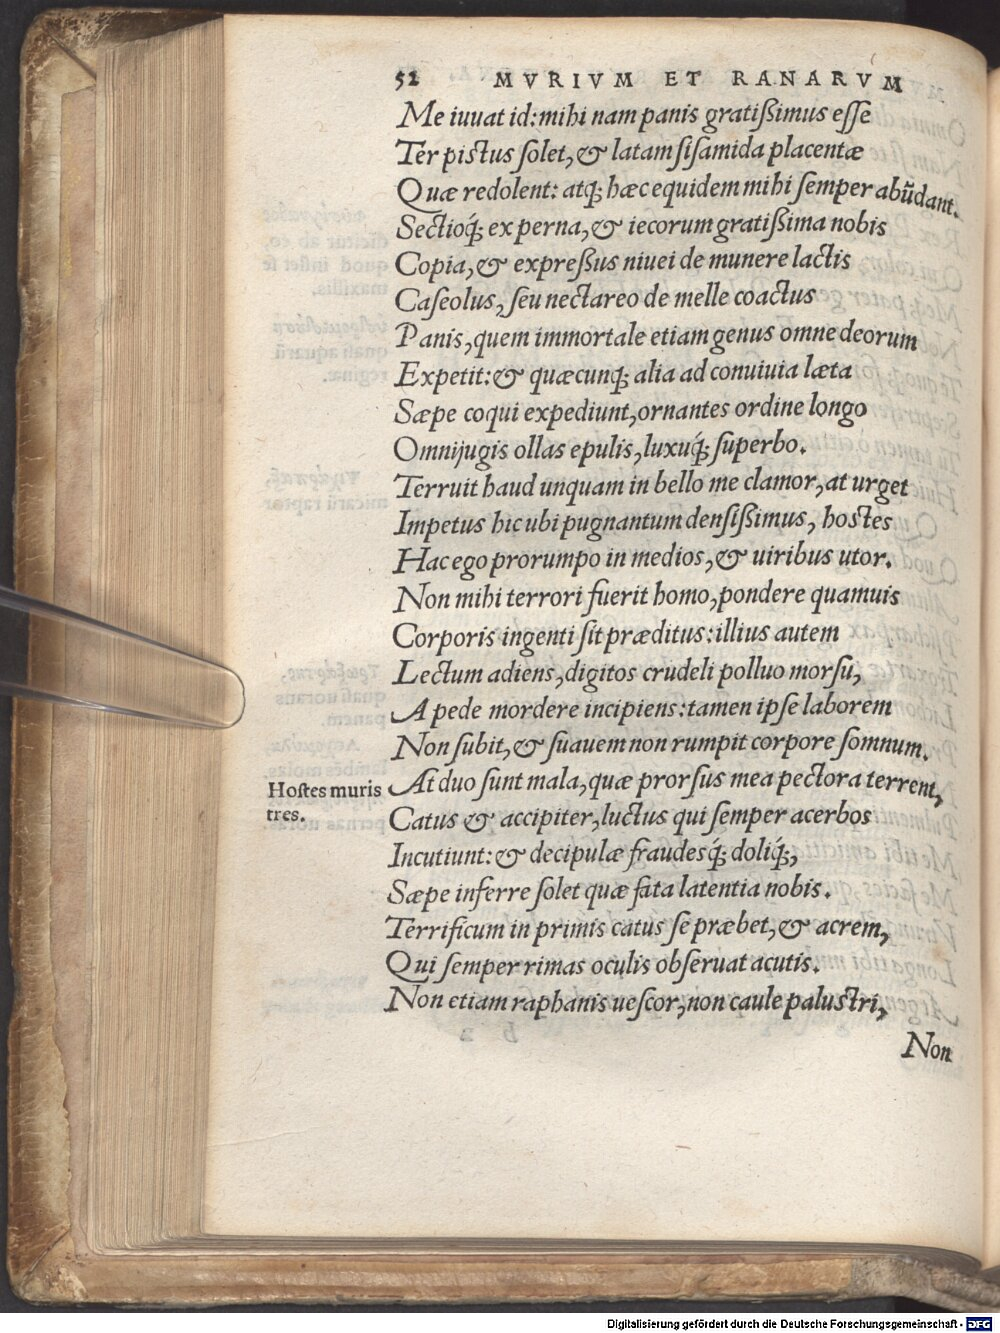 52 MVRIVM ET RANARVM
Me iuuat id: mihi nam panis gratißimus esse
Ter pistus solet, & latam sisamida placentæ
Quæ redolent: atq; hæc equidem mihi semper abũdant.
Sectioq́; ex perna, & iecorum gratißima nobis
Copia, & expreßus niuei de munere lactis
Caseolus, seu nectareo de melle coactus
Panis, quem immortale etiam genus omne deorum
Expetit: & quæcunq; alia ad conuiuia læta
Sæpe coqui expediunt, ornantes ordine longo
Omnijugis ollas epulis, luxuq́; superbo.
Terruit haud unquam in bello me clamor, at urget
Impetus hic ubi pugnantum densißimus, hostes
Hac ego prorumpo in medios, & uiribus utor.
Non mihi terrori fuerit homo, pondere quamuis
Corporis ingenti sit præditus: illius autem
Lectum adiens, digitos crudeli polluo morsu,
A pede mordere incipiens: tamen ipse laborem
Non subit, & suauem non rumpit corpore somnum.
Hostes muris tres.
At duo sunt mala, quæ prorsus mea pectora terrent,
Catus & accipiter, luctus qui semper acerbos
Incutiunt: & decipulæ fraudesq́; doliq́;,
Sæpe inferre solet quæ fata latentia nobis.
Terrificum in primis catus se præbet, & acrem,
Qui semper rimas oculis obseruat acutis.
Non etiam raphanis uescor, non caule palustri,
Non
Digitalisierung gefördert durch die Deutsche Forschungsgemeinschaft - DFG